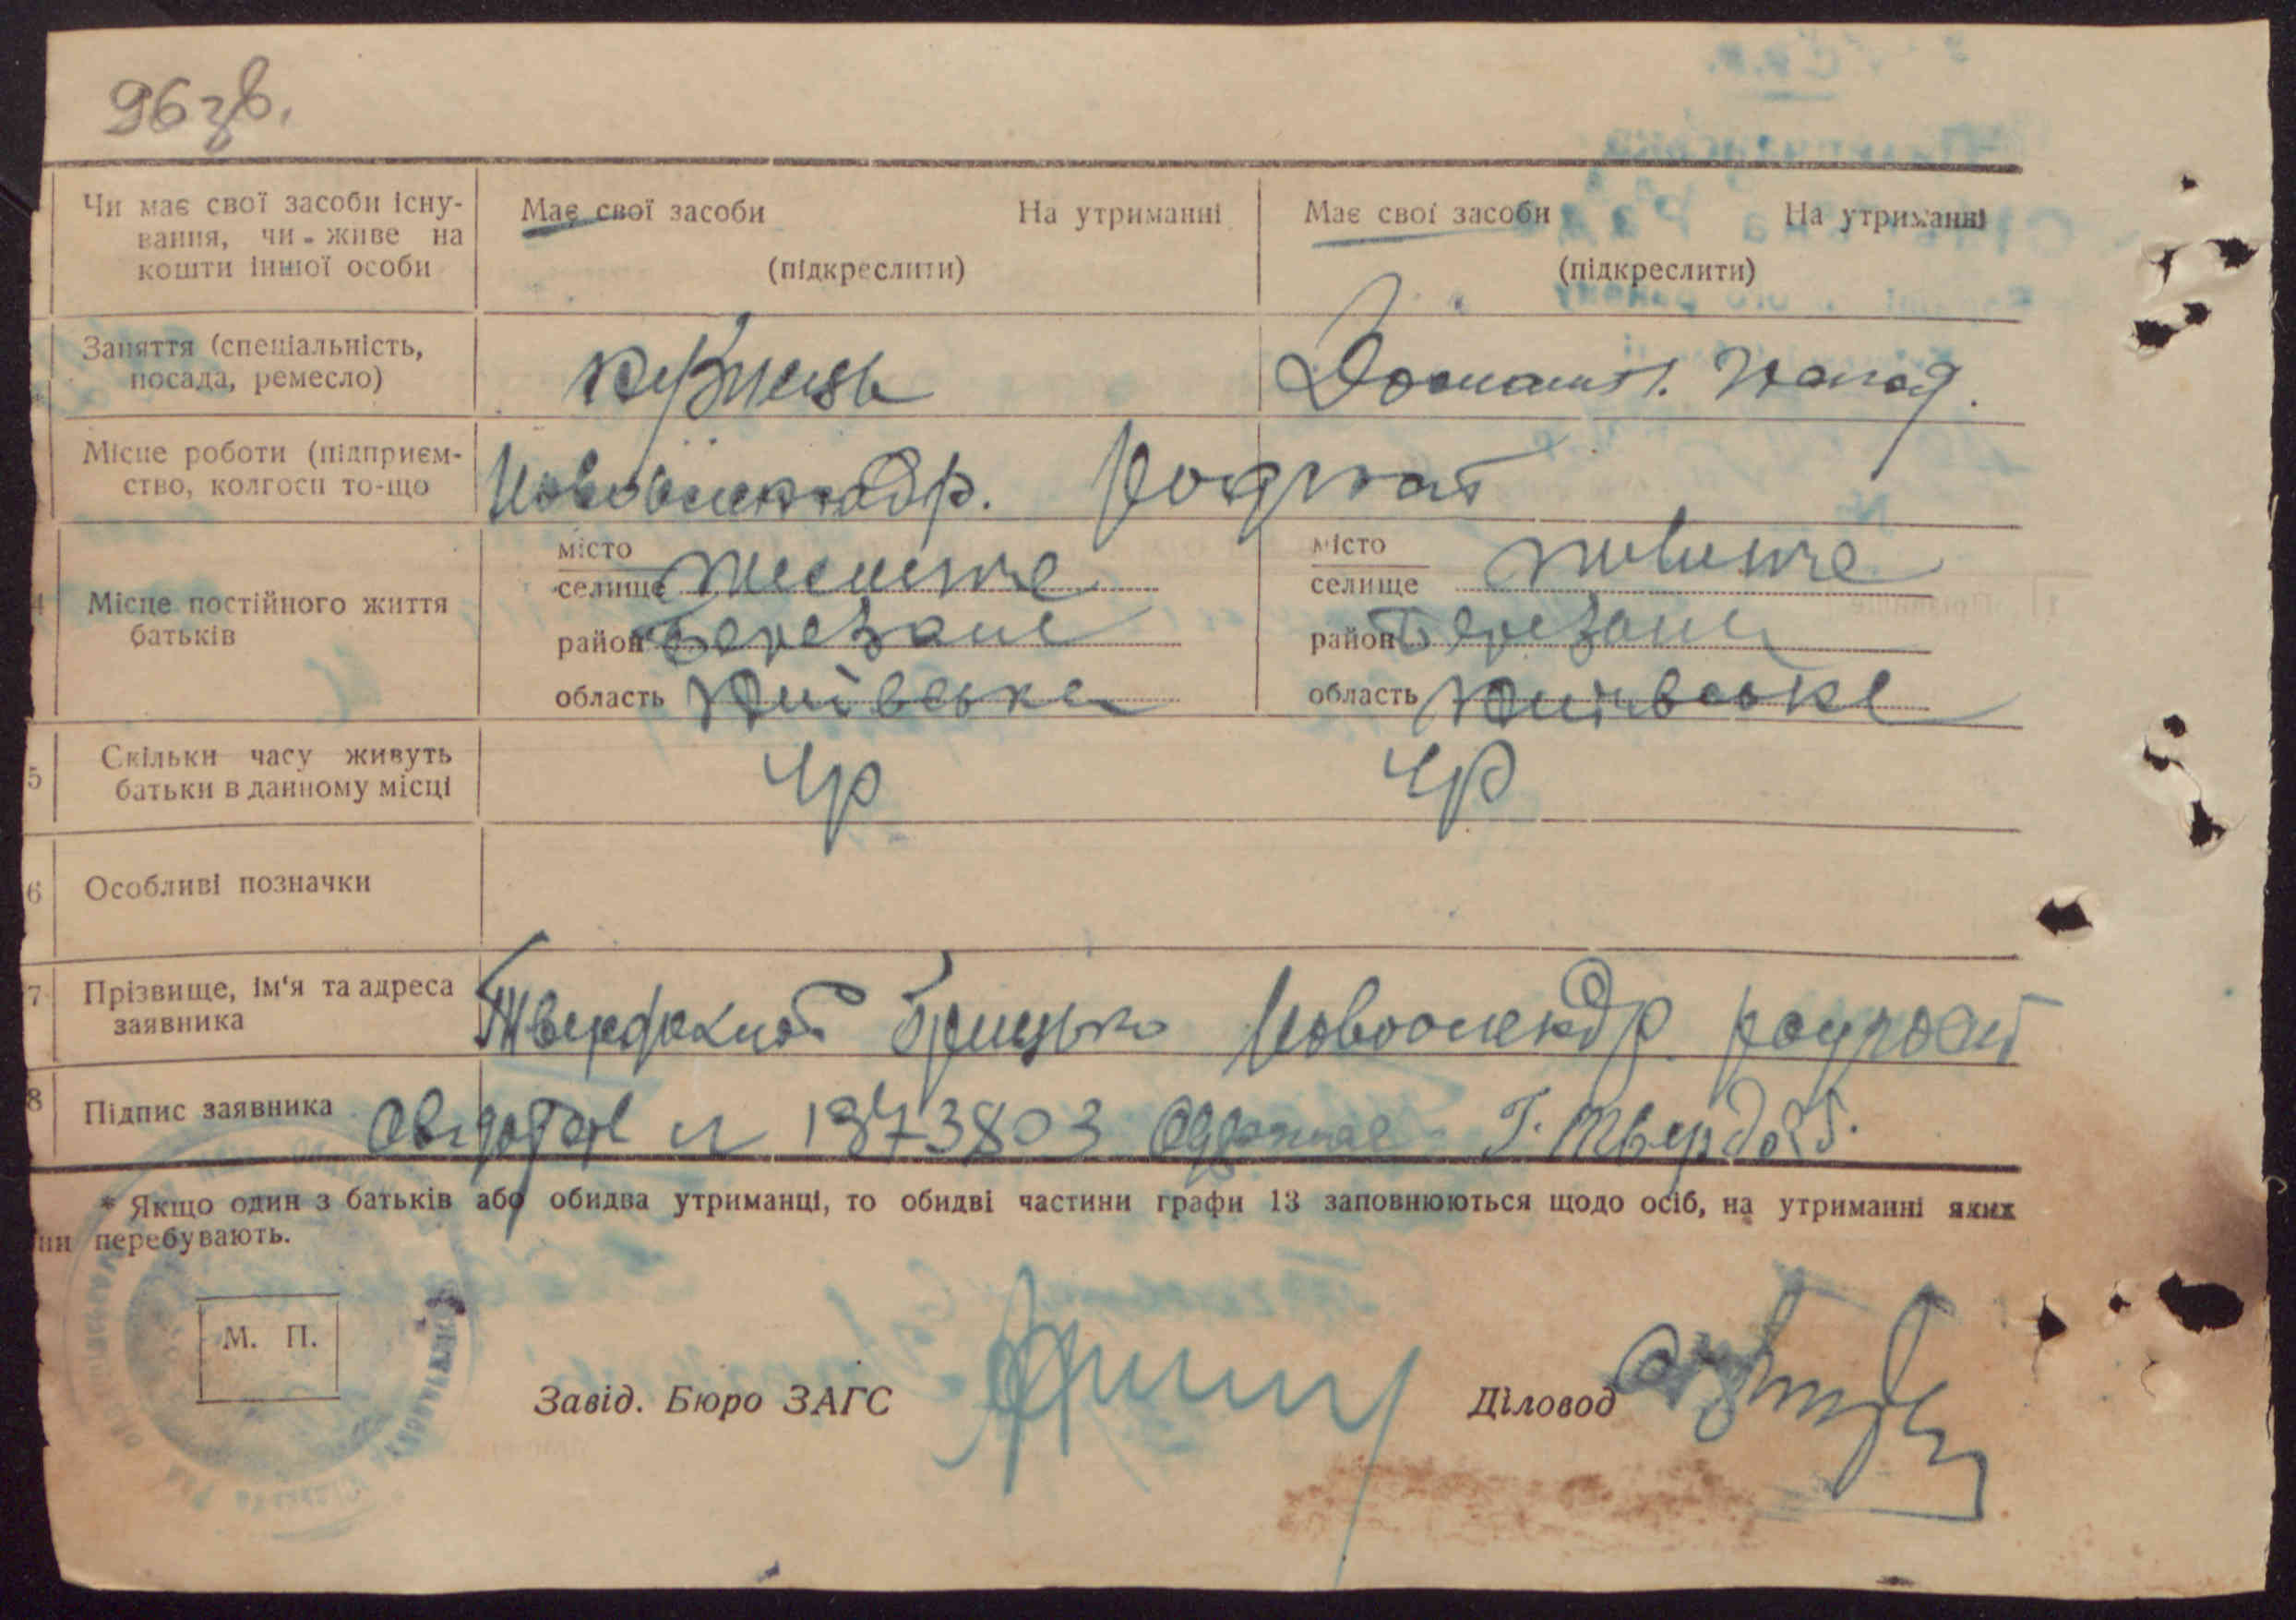 96 зв.
Чи має свої засоби існу-
вання, чи-живе на
кошти іншої особи
Має свої засоби На утриманні
(підкреслити)
Має свої засоби На утриманні
(підкреслити)
Заняття (спеціальність,
посада, ремесло)
Кузнець
Домашт.
Місце роботи (підприєм-
ство, колгосп то-що
Новоолександр. Радгосп
4 Місце постійного життя
батьків
місто
селище
район Березане
область Київська
місто
селище
район Березане
область Київське
5 Скільки часу живуть
батьки в данному місці
4р 4р
6 Особливі позначки
7 Прізвище, ім'я та адреса
заявника
Твердохліб Грицько Новоолександр. радгосп
8 Підпис заявника
1373803 Г. Твердохліб.
* Якщо один з батьків або обидва утриманці, то обидві частини графи 13 заповнюються щодо осіб, на утриманні яких
ни перебувають.
М. П.
Завід. Бюро ЗАГС
Діловод